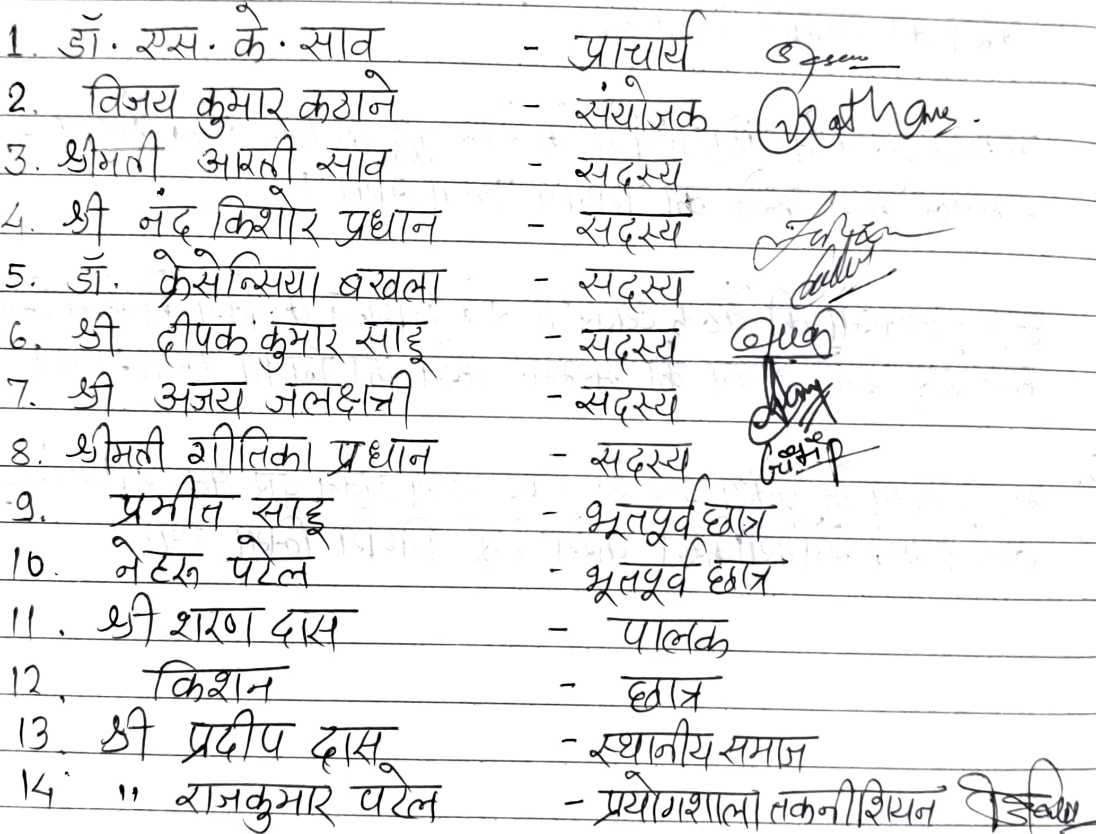 1. डॉ. एस. के. साव - प्राचार्य
2. विजय कुमार कठाने - संयोजक
3. श्रीमती आरती साव - सदस्य
4. श्री नंद किशोर प्रधान - सदस्य
5. डॉ. क्रेसेन्सिया बखला - सदस्य
6. श्री दीपक कुमार साहू - सदस्य
7. श्री अजय जलक्षत्री - सदस्य
8. श्रीमती गीतिका प्रधान - सदस्य
9. प्रमीत साहू - भूतपूर्व छात्र
10. नेहरू पटेल - भूतपूर्व छात्र
11. श्री शरण दास - पालक
12. किशन - छात्र
13. श्री प्रदीप दास - स्थानीय समाज
14 " राजकुमार पटेल - प्रयोगशाला तकनीशियन